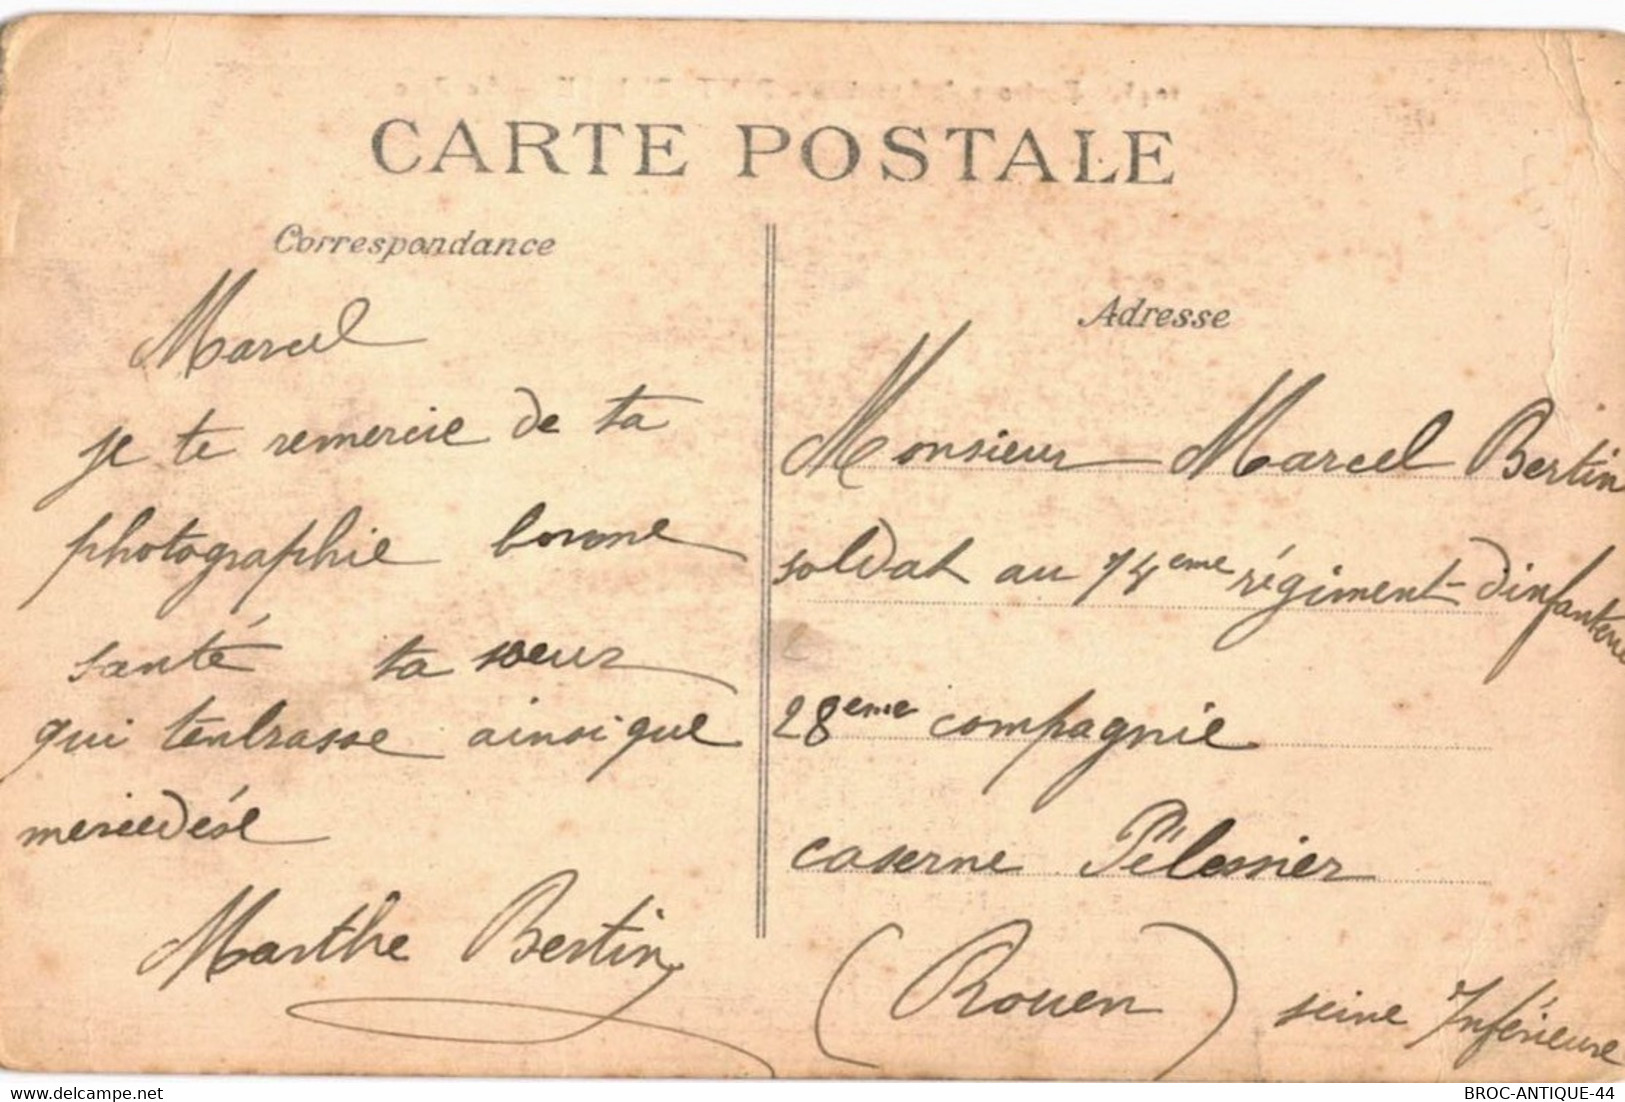 CARTE POSTALE
Correspondance
Marcel
je te remercie de ta
photographie bonne
santé ta soeur
qui tenbrasse ainsi que
Adresse
Monsieur Marcel Bertin
soldat au 74eme régiment dinfanterie
28eme compagnie
caserne Pélessier
(Rouen) seine Inférieure
Marthe Bertin
delcampe.net
BROC-ANTIQUE-44